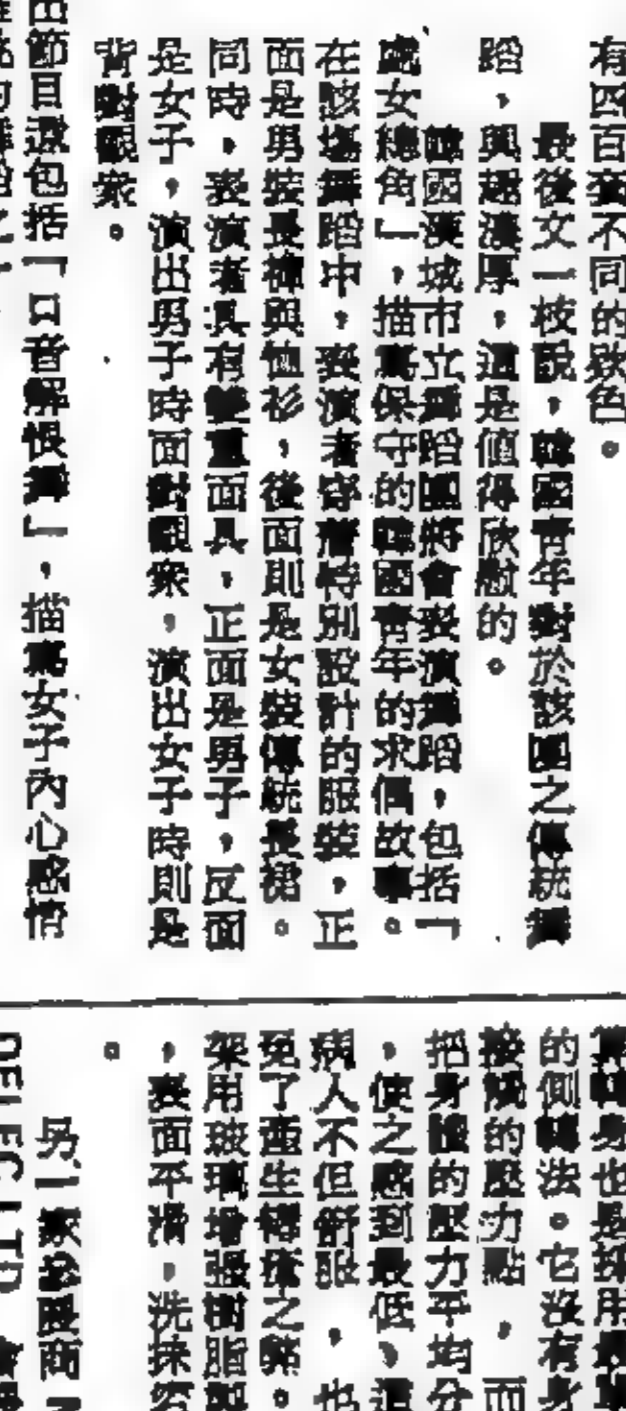 有四百套不同的款色。
最後文一枝說，韓國青年對於該國之傳統舞
蹈，興趣濃厚，這是值得欣慰的。
韓國漢城市立舞蹈團將會表演舞蹈，包括「
處女總角」，描寫保守的韓國青年的求偶故事。
在該場舞蹈中，表演者穿着特別設計的服裝，正
面是男裝長褲與恤衫，後面則是女裝傳統長裙。
同時，表演者具有雙重面具，正面是男子，反面
是女子，演出男子時面對觀衆，演出女子時則是
背對觀衆。
出節目還包括「口音解恨舞」，描寫女子內心感情
轉身也是採用最
的側轉法。它沒有身
接觸的壓力點，而
把身體的壓力平均分
，使之感到最低，這
病人不但舒服，也
免了產生褥瘡之弊。
架用玻璃增強樹脂製
，表面平滑，洗抹容
。
另一家參展商
DELEC LTD